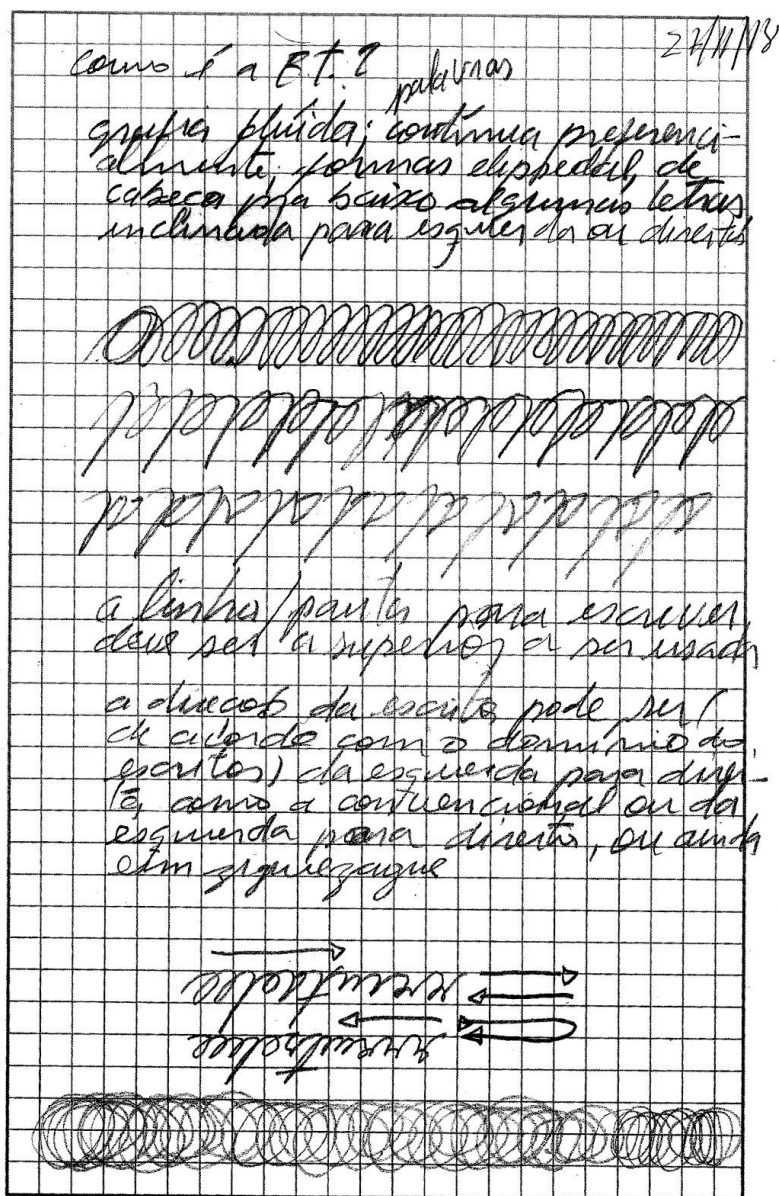 27/11/18
como é a E.T.?
palavras
grafia fluida; contínua preferenci-
almente, formas de
cabeça pra baixo algumas letras
inclinada para esquerda ou direita
a linha/pauta para escrever,
deve ser a superior a ser usada
a direção da escrita pode ser (
de acordo com o domínio do
escritos) da esquerda para direi-
ta, como a convencional ou da
esquerda para direita, ou ainda
em ziguezague